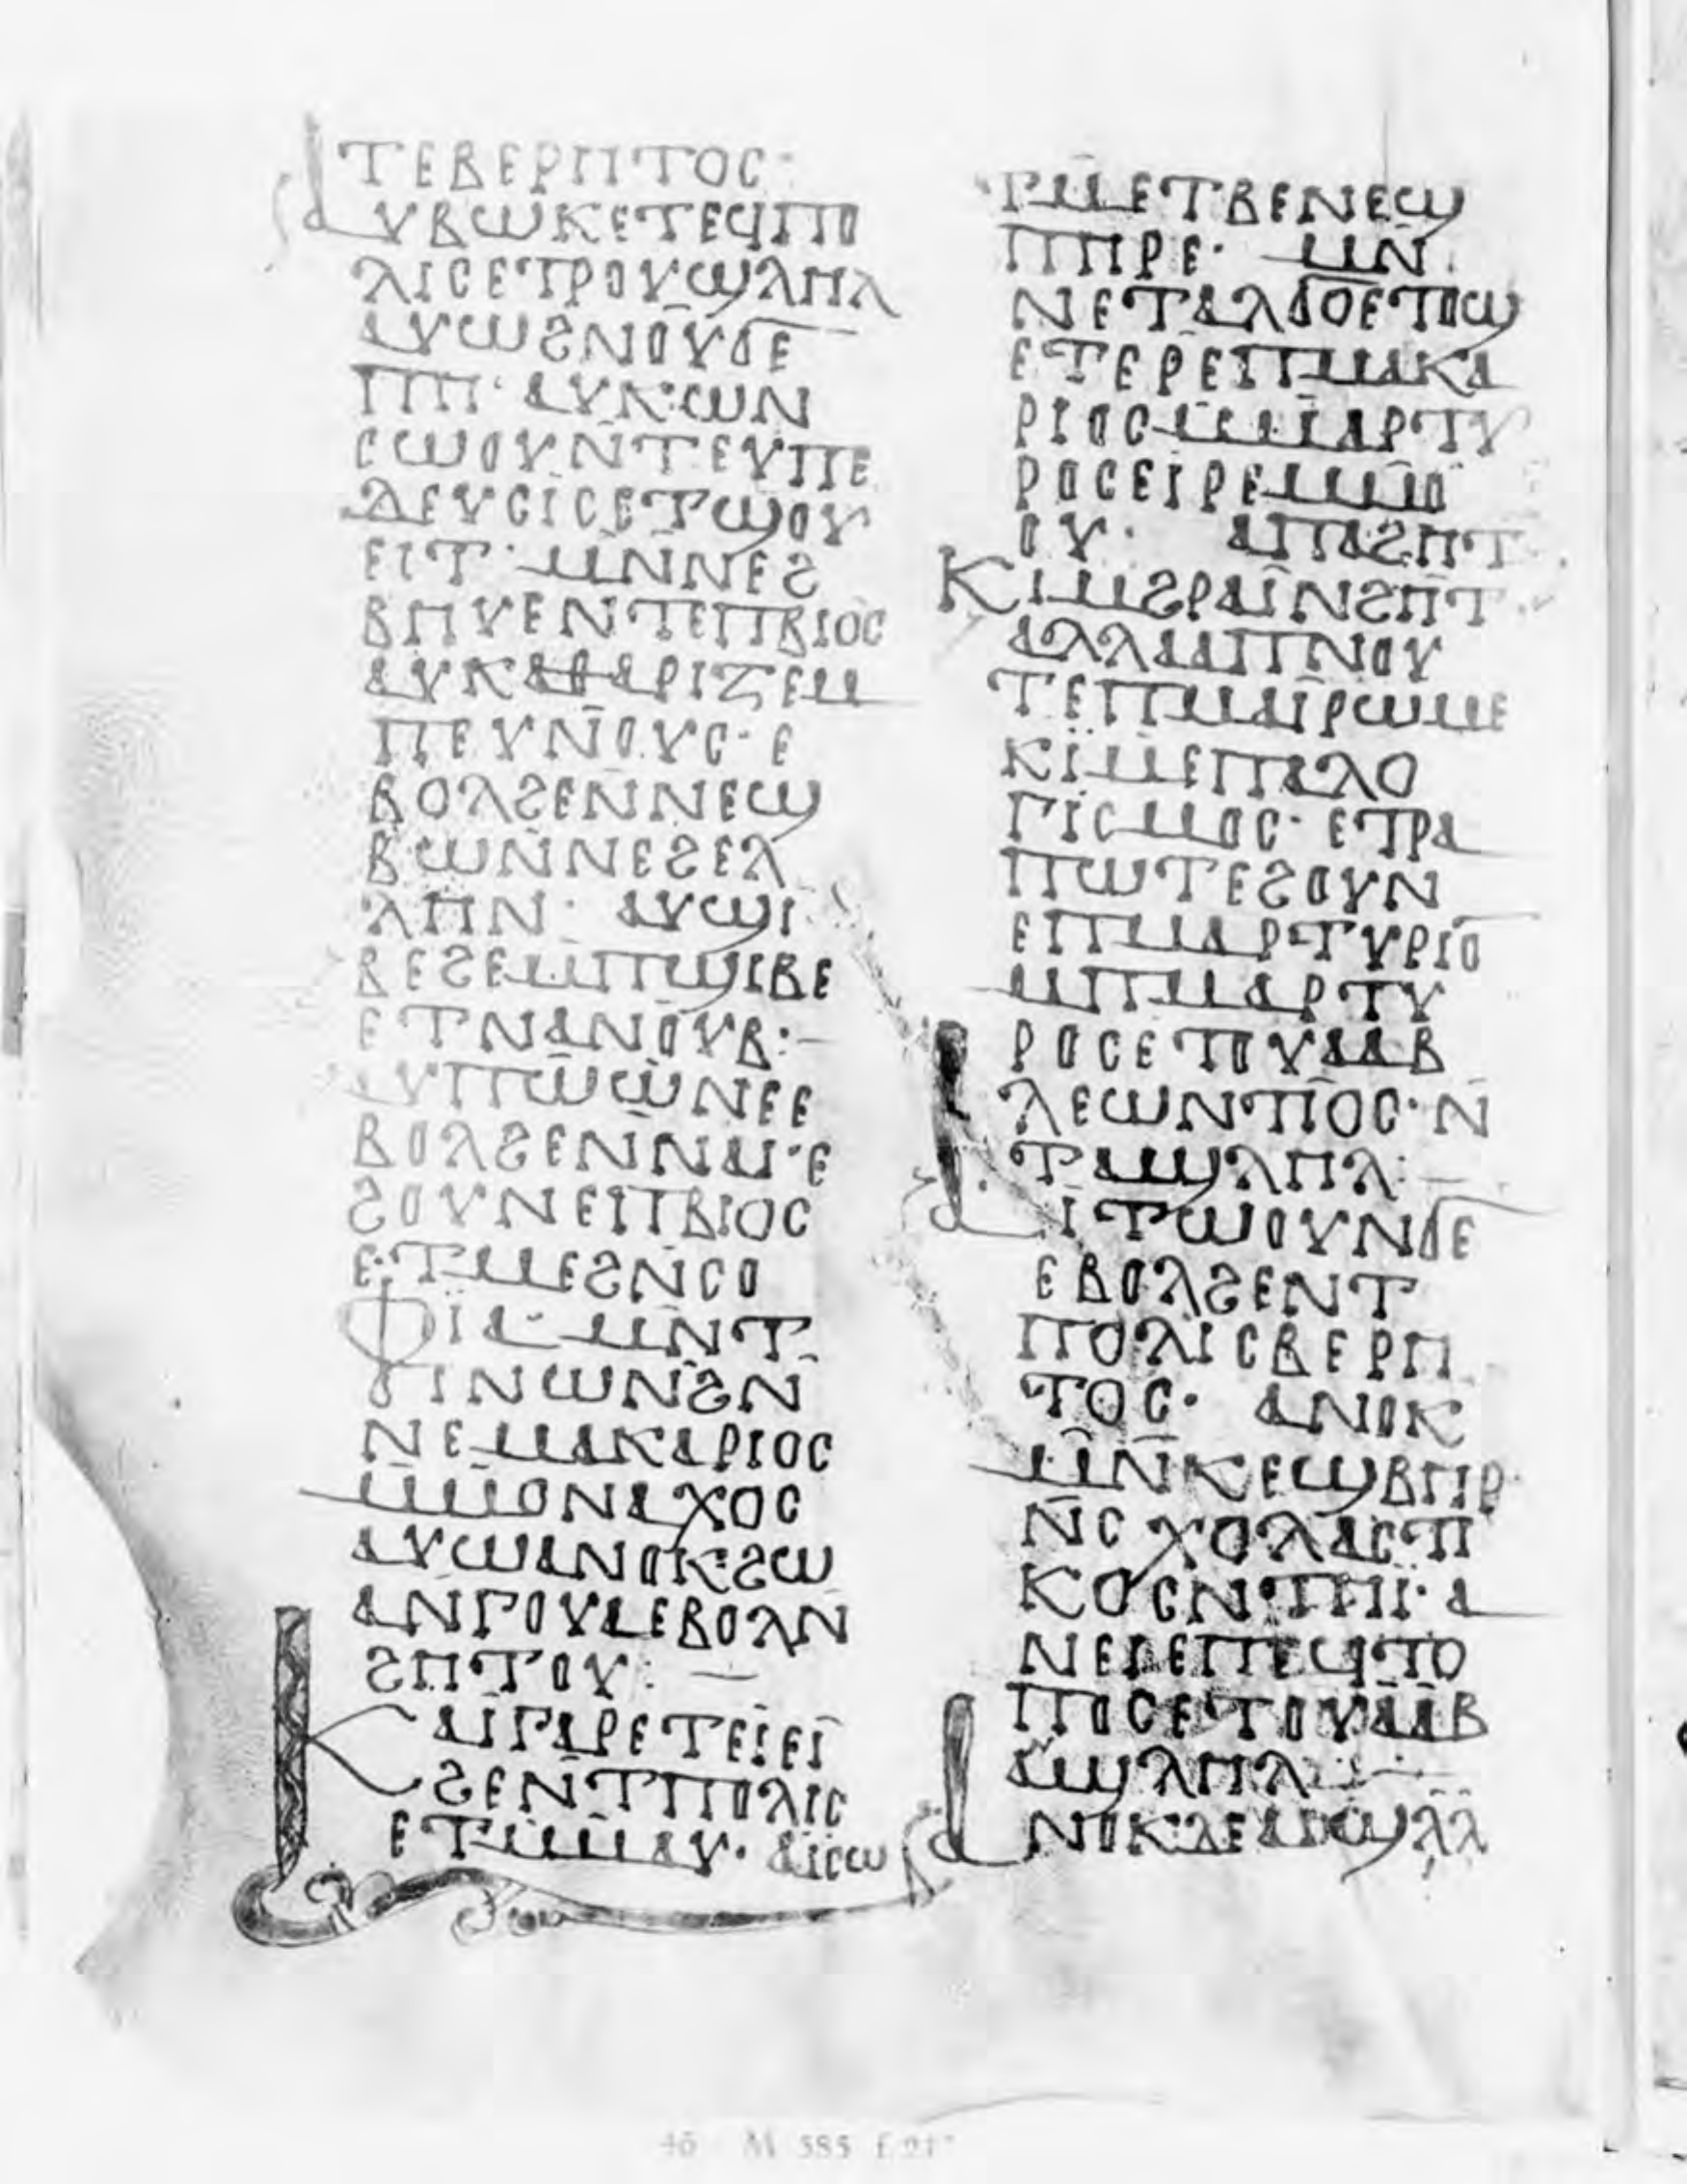 ⲦⲈⲂⲈⲢⲎⲦⲞⲤ·
ⲀⲨⲂⲰⲔⲈⲦⲈϤⲠⲞ
ⲖⲒⲤⲈⲦⲢⲞⲨϢⲖⲎⲖ
ⲀⲨⲰϨⲚⲞⲨϬⲈ
ⲠⲎ· ⲀⲨⲔⲰⲚ
ⲤⲰⲞⲨⲚ̄ⲦⲈⲨⲠⲈ
ⲖⲈⲨⲤⲒⲤⲈⲦϢⲞⲨ
ⲈⲒⲦ· ⲘⲚ̄ⲚⲈϨ
ⲂⲎⲨⲈⲚ̄ⲦⲈⲠⲂⲒⲞⲤ
ⲀⲨⲔⲀⲐⲀⲢⲒⲌⲈⲘ̄
ⲠⲈⲨⲚⲞⲨⲤ· Ⲉ
ⲂⲞⲖϨⲈⲚⲚⲈϢ
ⲂⲰⲚ̄ⲚⲈϨⲈⲖ
ⲖⲎⲚ· ⲀⲨϢⲒ
ⲂⲈϨⲈⲘⲠϢⲒⲂⲈ
ⲈⲦⲚⲀⲚⲞⲨⲂ:—
ⲀⲨⲠⲰⲰⲚⲈⲈ
ⲂⲞⲖϨⲈⲚⲚⲀⲒ·Ⲉ
ϨⲞⲨⲚⲈⲠⲂⲒⲞⲤ
ⲈⲦⲘⲈϨⲚ̄ⲤⲞ
ⲪⲒⲀ· ⲘⲚ̄Ⲧ
ϬⲒⲚⲰⲚϨ̄Ⲛ
ⲚⲈⲘⲀⲔⲀⲢⲒⲞⲤ
Ⲙ̄ⲘⲞⲚⲀⲬⲞⲤ
ⲀⲨⲰⲀⲚⲞⲔϨⲰ
ⲀⲚⲄⲞⲨⲀⲈⲂⲞⲖⲚ̄
ϨⲎⲦⲞⲨ:—
ⲔⲀⲒⲄⲀⲢⲈⲦⲈⲒⲈⲒ
ϨⲈⲚ̄ⲦⲠⲞⲖⲒⲤ
ⲈⲦⲘ̄ⲘⲀⲨ· ⲀⲒⲤⲰ
ⲦⲘⲈⲦⲂⲈⲚⲈϢ
ⲠⲎⲢⲈ· ⲘⲚ̄
ⲚⲈⲦⲀⲖϬⲞⲈⲦⲞϢ
ⲈⲦⲈⲢⲈⲠⲘⲀⲔⲀ
ⲢⲒⲞⲤⲘ̄ⲘⲀⲢⲦⲨ
ⲢⲞⲤⲈⲒⲢⲈⲘ̄ⲘⲞ
ⲞⲨ· ⲀⲠⲀϨⲎⲦ
ⲔⲒⲘϨⲢⲀⲒ̈Ⲛ̄ϨⲎⲦ·
ⲀⲖⲖⲀⲀⲠⲚⲞⲨ
ⲦⲈⲠⲘⲀⲒ̈ⲢⲰⲘⲈ
ⲔⲒⲘⲈⲠⲀⲖⲞ
ⲄⲒⲤⲘⲞⲤ· ⲈⲦⲢⲀ
ⲠⲰⲦⲈϨⲞⲨⲚ
ⲈⲠⲘⲀⲢⲦⲨⲢⲒⲞ̄
ⲘⲠⲘⲀⲢⲦⲨ
ⲢⲞⲤⲈⲦⲞⲨⲀⲀⲂ
ⲖⲈⲰⲚⲦⲒⲞⲤ·Ⲛ̄
ⲦⲀϢⲖⲎⲖ:—
ⲀⲒⲦⲰⲞⲨⲚϬⲈ
ⲈⲂⲞⲖϨⲈⲚⲦ
ⲠⲞⲖⲒⲤⲂⲈⲢⲎ
ⲦⲞⲤ· ⲀⲚⲞⲔ
ⲘⲚ̄ⲔⲈϢⲂⲎⲢ
Ⲛ̄ⲤⲬⲞⲖⲀⲤⲦⲒ
ⲔⲞⲤⲚⲦⲎⲒ· Ⲁ
ⲚⲈⲢⲈⲠⲈϤⲦⲞ
ⲠⲞⲤⲈⲦⲞⲨⲀⲀⲂ
ⲀϢⲖⲎⲖ:—
ⲀⲚⲞⲔⲆⲈⲀⲒϢⲖⲖ
46 M 585 f.21ᵛ